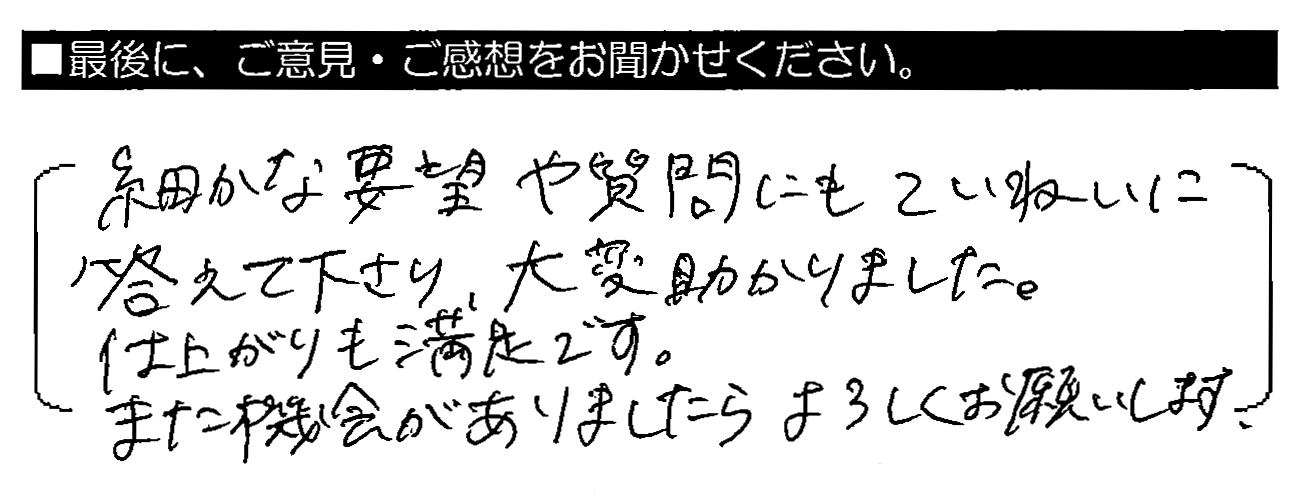 ■最後に、ご意見・ご感想をお聞かせください。
細かな要望や質問にもていねいに
答えて下さり、大変助かりました。
仕上がりも満足です。
また機会がありましたらよろしくお願いします。